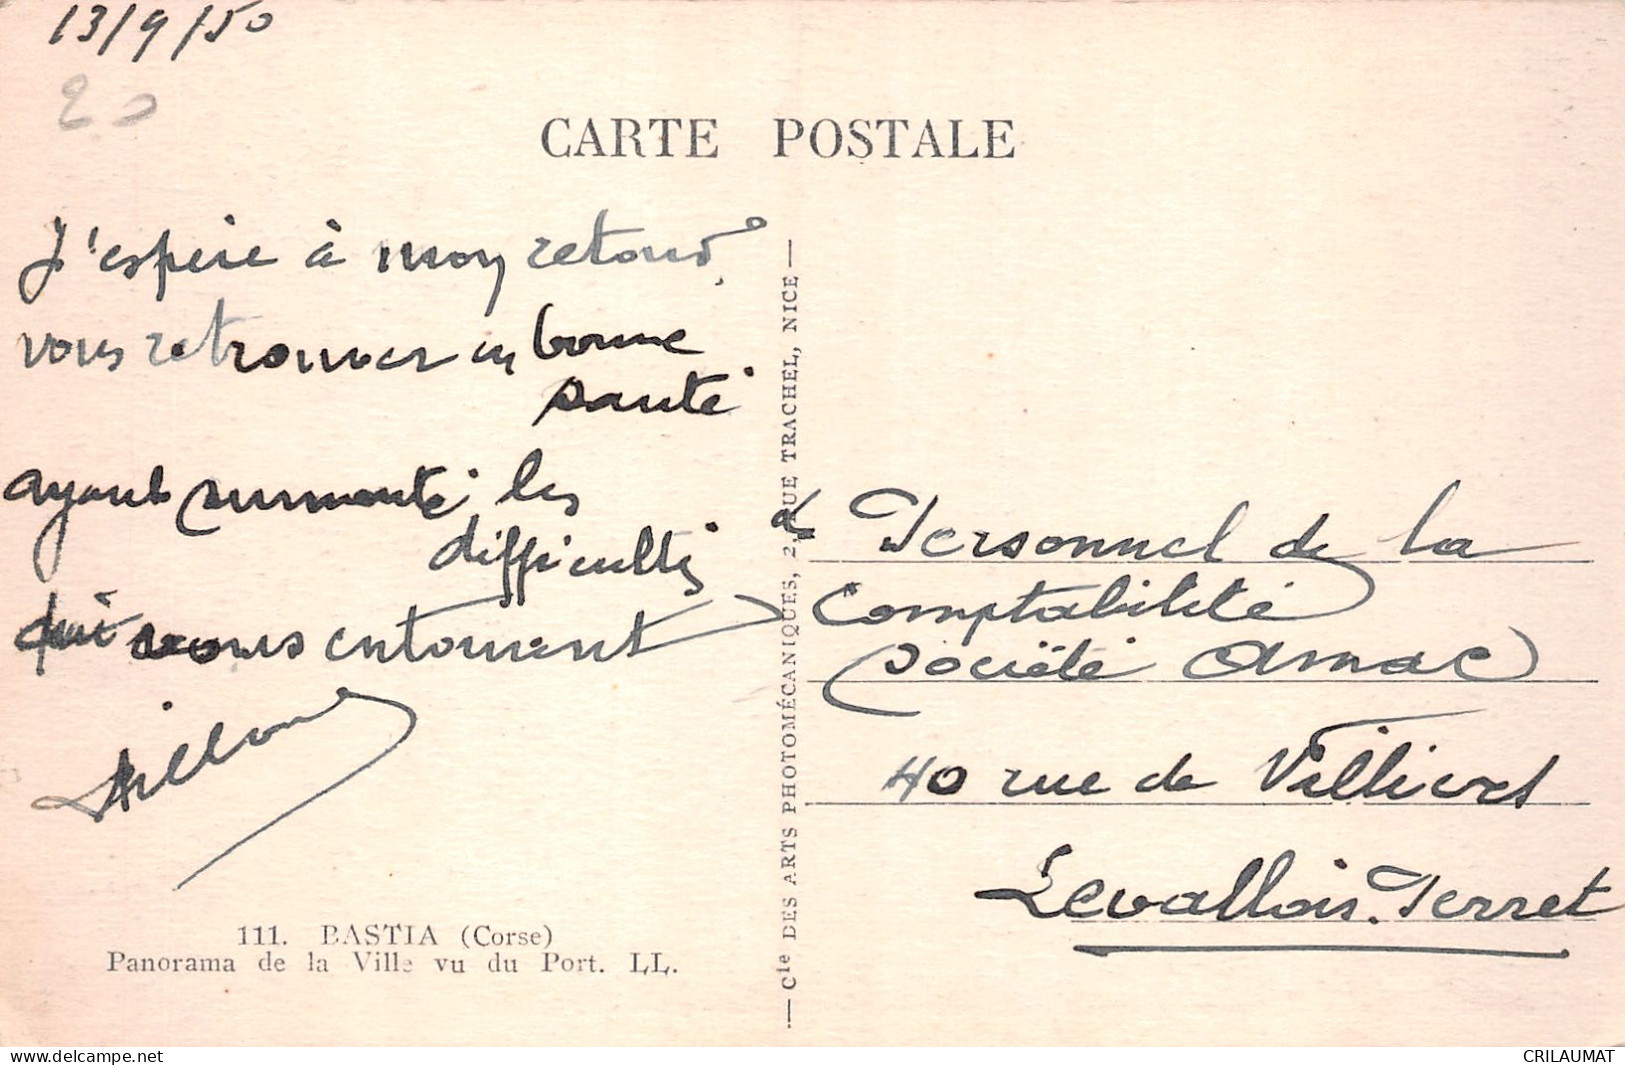 13/9/50
20
CARTE POSTALE
J'espère à mon retour
vous retrouver en bonne
santé
ayant surmonté les
difficultés
qui vous entourent
111. BASTIA (Corse)
Panorama de la Ville vu du Port. LL.
— Cie DES ARTS PHOTOMÉCANIQUES, 2, RUE TRACHEL, NICE —
Personnel de la
Comptabilité
Société Amac
40 rue de Villiers
Levallois-Perret
delcampe.net
CRILAUMAT